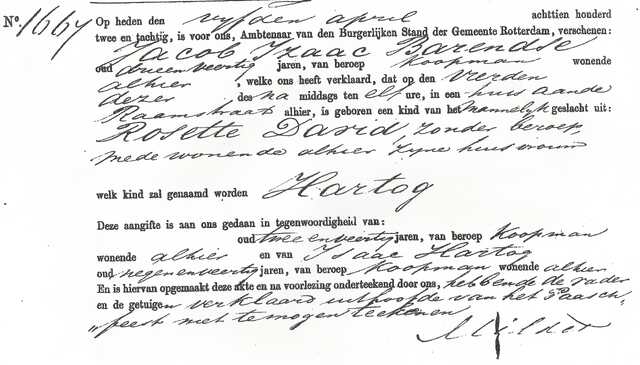 No. 1667 Op heden den vyfden april achttien honderd
twee en tachtig, is voor ons, Ambtenaar van den Burgerlijken Stand der Gemeente Rotterdam, verschenen:
Jacob Izaac Barendse
oud drieenveertig jaren, van beroep Koopman wonende
alhier, welke ons heeft verklaard, dat op den vierden
dezer des na middags ten elf ure, in een huis aande
Raamstraat alhier, is geboren een kind van het mannelyk geslacht uit:
Rosette David, zonder beroep,
mede wonende alhier zyne huisvrouw
welk kind zal genaamd worden Hartog
Deze aangifte is aan ons gedaan in tegenwoordigheid van:
oud tweeenveertig jaren, van beroep Koopman
wonende alhier en van Isaac Hartog
oud negenenveertig jaren, van beroep Koopman wonende alhier
En is hiervan opgemaakt deze akte en na voorlezing onderteekend door ons, hebbende de vader
en de getuigen verklaard uithoofde van het Paasch„
„feest niet te mogen teekenen.